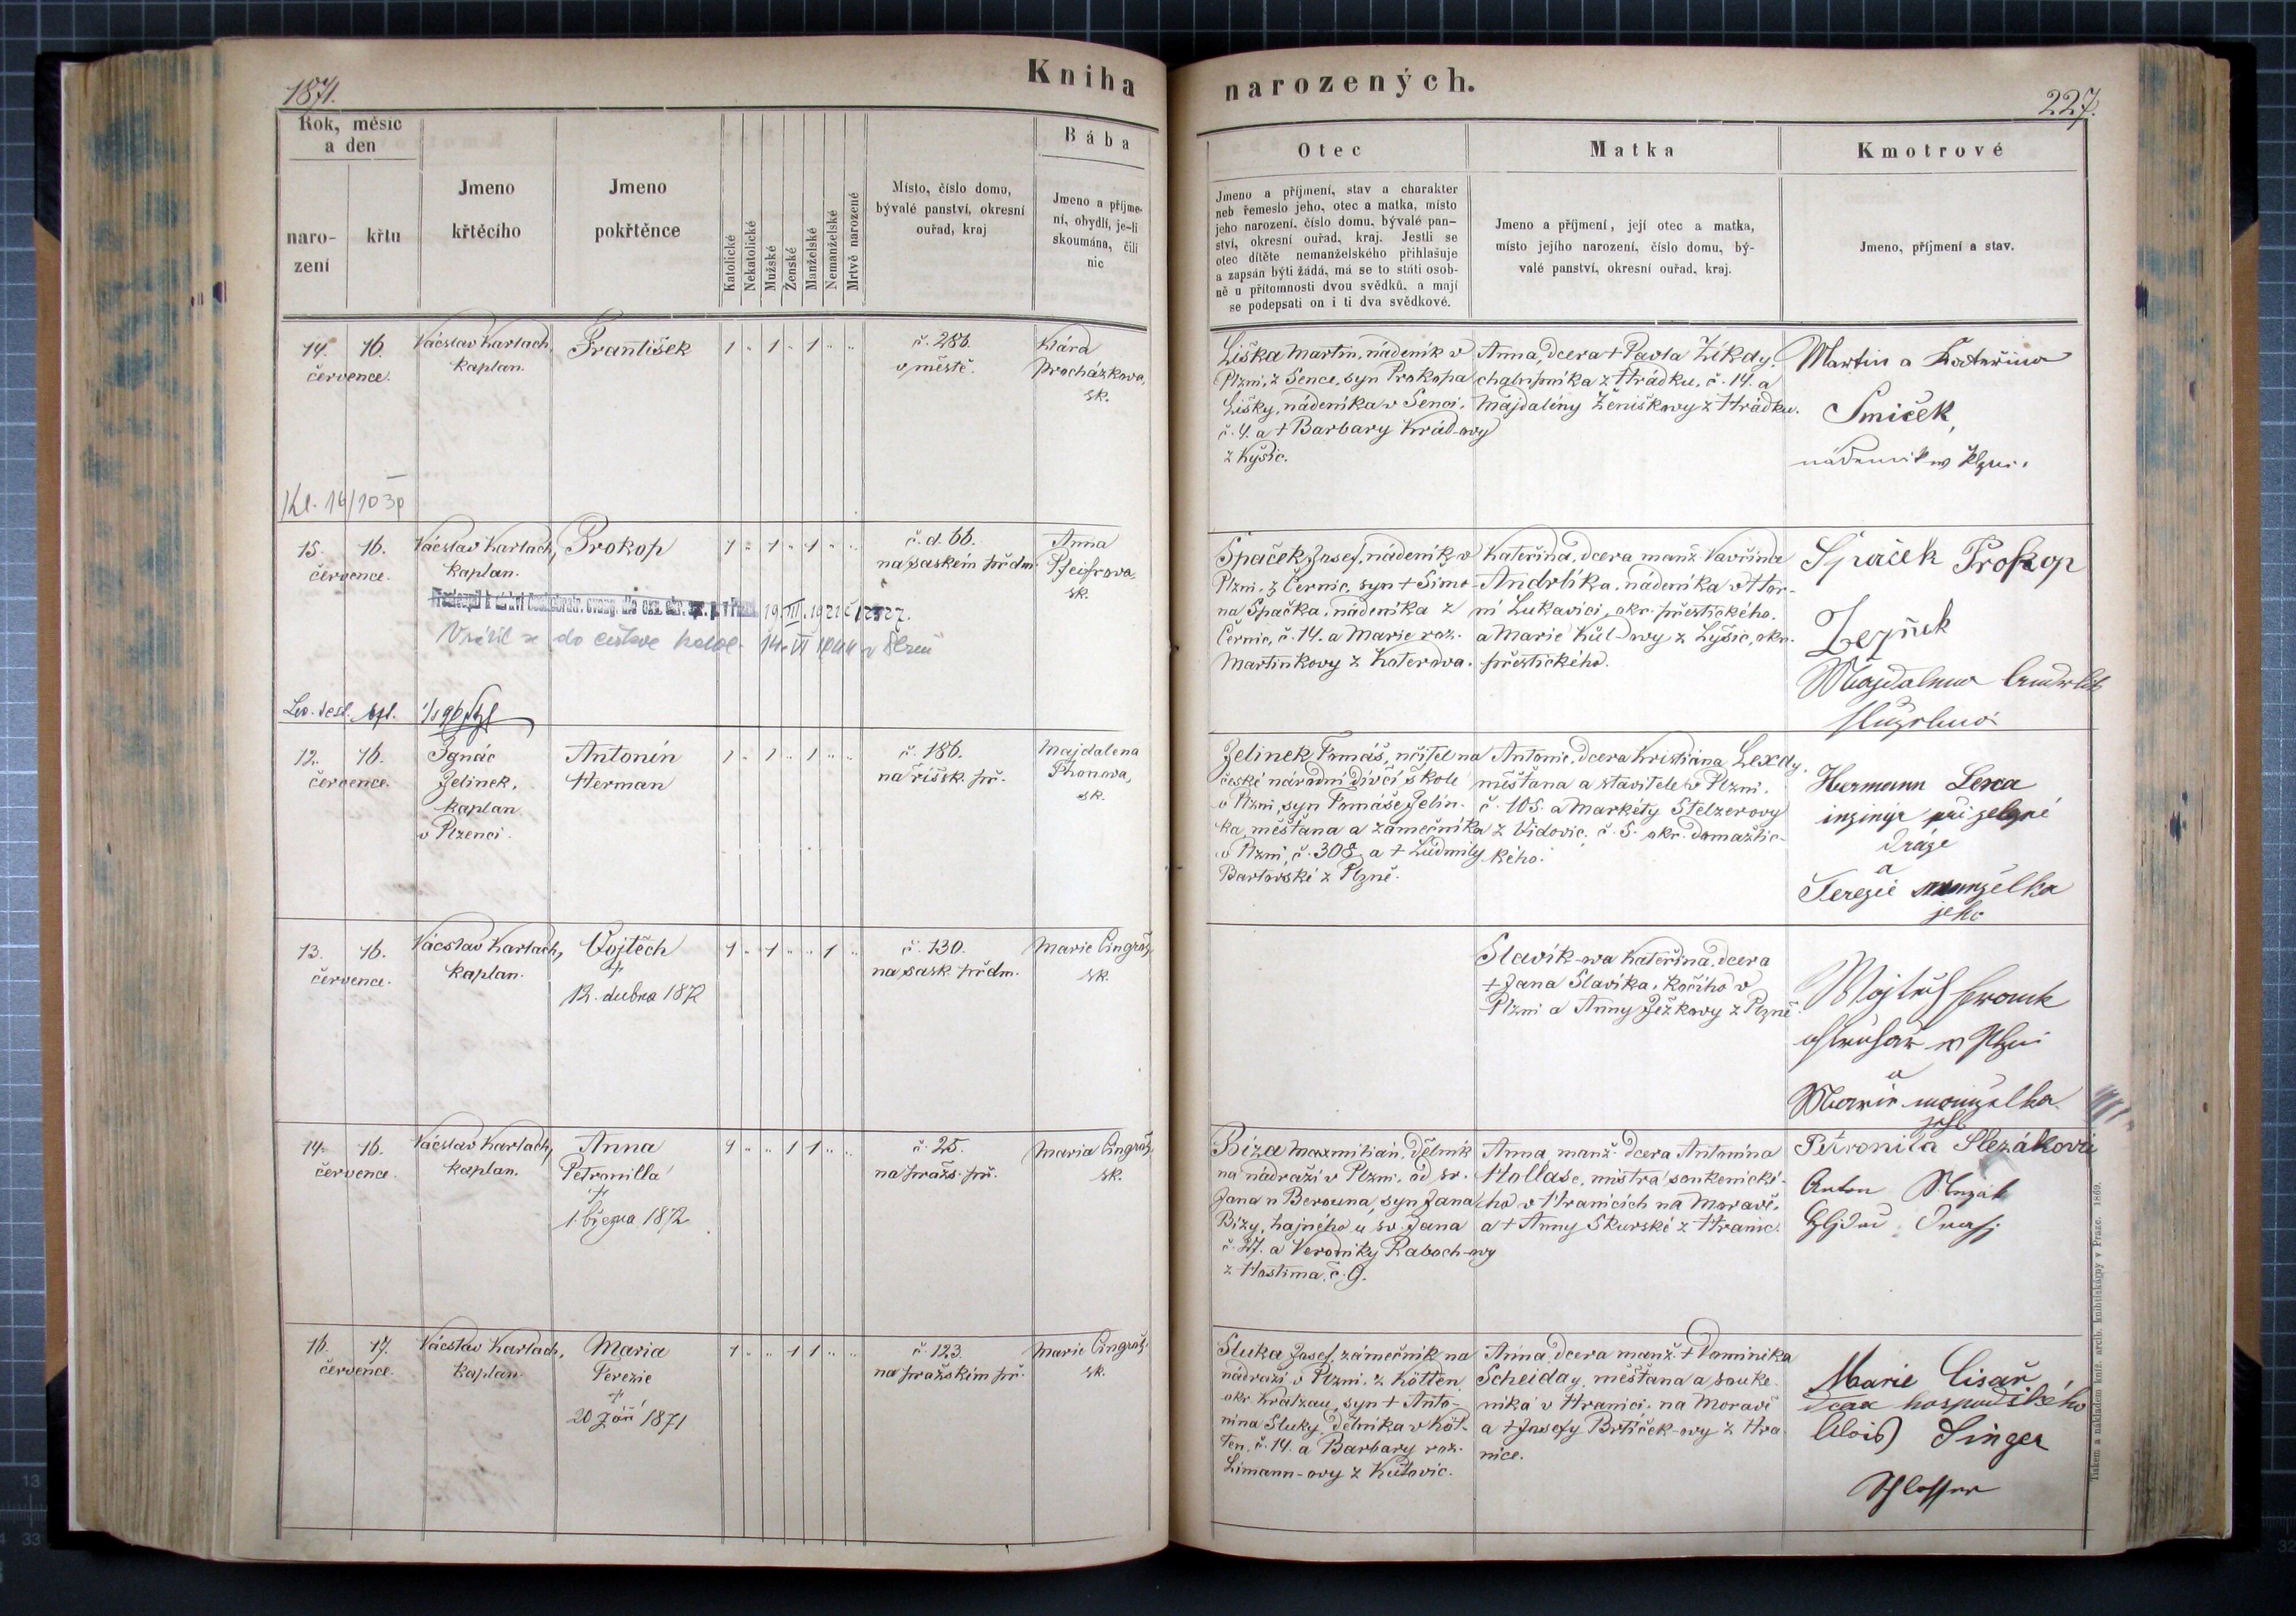 1871.
Kniha
Rok, měsíc
a den
naro-
zení
křtu
Jmeno
křtěcího
Jmeno
pokřtěnce
Katolické
Nekatolické
Mužské
Ženské
Manželské
Nemanželské
Mrtvě narozené
Místo, číslo domu,
bývalé panství, okresní
ouřad, kraj
Bába
Jmeno a příjme-
ní, obydlí, je-li
skoumána, čili
nic
14. 16.
července.
Vácslav Karlach,
kaplan.
František
1 " 1 " 1 " "
č. 286.
v městě.
Klára
Procházkova,
sk.
15. 16.
července.
Vácslav Karlach,
kaplan.
Prokop
1 " 1 " 1 " "
č. d. 66.
na saském předm.
Anna
Pfeifrova,
sk.
19. III. 1921
Vrátil se do církve
12. 16.
července.
Ignác
Jelinek,
kaplan
v Plzenci.
Antonín
Herman
1 " 1 " 1 " "
č. 186.
na říšsk. př.
Majdalena
Thonova,
sk.
13. 16.
července.
Vácslav Karlach,
kaplan.
Vojtěch
+
12. dubna 1872
1 " 1 " " 1 "
č. 130.
na sask. předm.
Marie Cingroš,
sk.
14. 16.
července.
Vácslav Karlach,
kaplan.
Anna
Petronilla
+
1. března 1872
1 " " 1 1 " "
č. 25.
na praž. př.
Maria Cingroš,
sk.
16. 17.
července.
Vácslav Karlach,
kaplan.
Maria
Terezie
+
20 září 1871
1 " " 1 1 " "
č. 123.
na pražském př.
Marie Cingroš,
sk.
narozených.
227.
Otec
Jmeno a příjmení, stav a charakter
neb řemeslo jeho, otec a matka, místo
jeho narození, číslo domu, bývalé pan-
ství, okresní ouřad, kraj. Jestli se
otec dítěte nemanželského přihlašuje
a zapsán býti žádá, má se to státi osob-
ně u přítomnosti dvou svědků, a mají
se podepsati on i ti dva svědkové.
Matka
Jmeno a příjmení, její otec a matka,
místo jejího narození, číslo domu, bý-
valé panství, okresní ouřad, kraj.
Kmotrové
Jmeno, příjmení a stav.
Liška Martin, nádeník v
Plzni, z Sence, syn Prokopa
Lišky, nádeníka v Senci,
č. 4. a + Barbary Král-ovy
z Kyšic.
Anna, dcera + Pavla Zíkdy,
chalupníka z Hrádku, č. 14. a
Majdalény Ženíškovy z Hrádku.
Martin a Kateřina
Smíček,
nádeník v Plzni.
Špaček Josef, nádeník v
Plzni, z Černic, syn + Šimo-
na Špačka, nádeníka z
Černic, č. 14. a Marie roz.
Martinkovy z Koterova.
Kateřina, dcera manž. Vavřína
Andrlíka, nádeníka v Hor-
ní Lukavici, okr. přestického.
a Marie Kůl-ovy z Lyšic, okr.
přestického.
Špaček Prokop
Majdalena Andrlík
služebná
Jelinek Tomáš, učitel na
české národní dívčí škole
v Plzni, syn Tomáše Jelín-
ka, měšťana a zámečníka
v Plzni, č. 308, a + Ludmily
Bartovské z Plzně.
Antonie, dcera Kristiána Lexdy,
měšťana a stavitele v Plzni,
č. 105. a Markéty Stelzerovy
z Vidovic, č. 5. okr. domažlic-
kého.
Hermann Lexa
inzinýr při zelezné
dráze
a
Terezie manzelka
jeho
Slavík-ova Kateřina, dcera
+ Jana Slavíka, kočího v
Plzni a Anny Ježkovy z Plzně.
v Plzni
a
Marie manželka
jeho
Bíza Maxmilián, dělník
na nádraží v Plzni, od sv.
Jana u Berouna, syn Jana
Bízy, hajného u sv. Jana
č. 27. a Veroniky Raboch-ovy
z Hostíma, č. 9.
Anna, manž. dcera Antonína
Hollase, mistra soukenické-
ho v Hranicích na Moravě,
a + Anny Skurské z Hranic.
Petronila Slezáková
Anton Slezák
Sluka Josef, zámečník na
nádraží v Plzni, z Kötten,
okr. Kratzau, syn + Anto-
nína Sluky, dělníka v Köt-
ten, č. 14. a Barbary roz.
Limann-ovy z Kutovic.
Anna, dcera manž. + Dominika
Scheiday, měšťana a souke-
níka v Hranici, na Moravě
a + Josefy Brtíček-ovy z Hra-
nice.
Marie Cisař
dcera hospodského
Alois Singer
Schlosser
Tiskem a nákladem kníž. arcib. knihtiskárny v Praze. 1869.